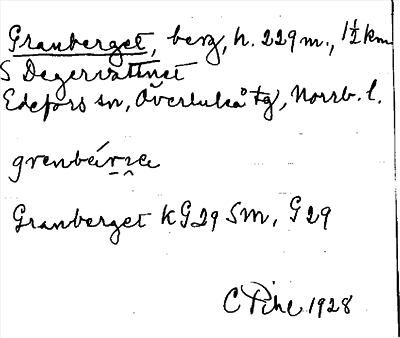 Granberget, berg, h. 229 m., 1½ km
S Degervattnet
Edefors sn, Överluleå tg, Norrb. l.
Granberget kG29 Sm, G29
C Pihl 1928